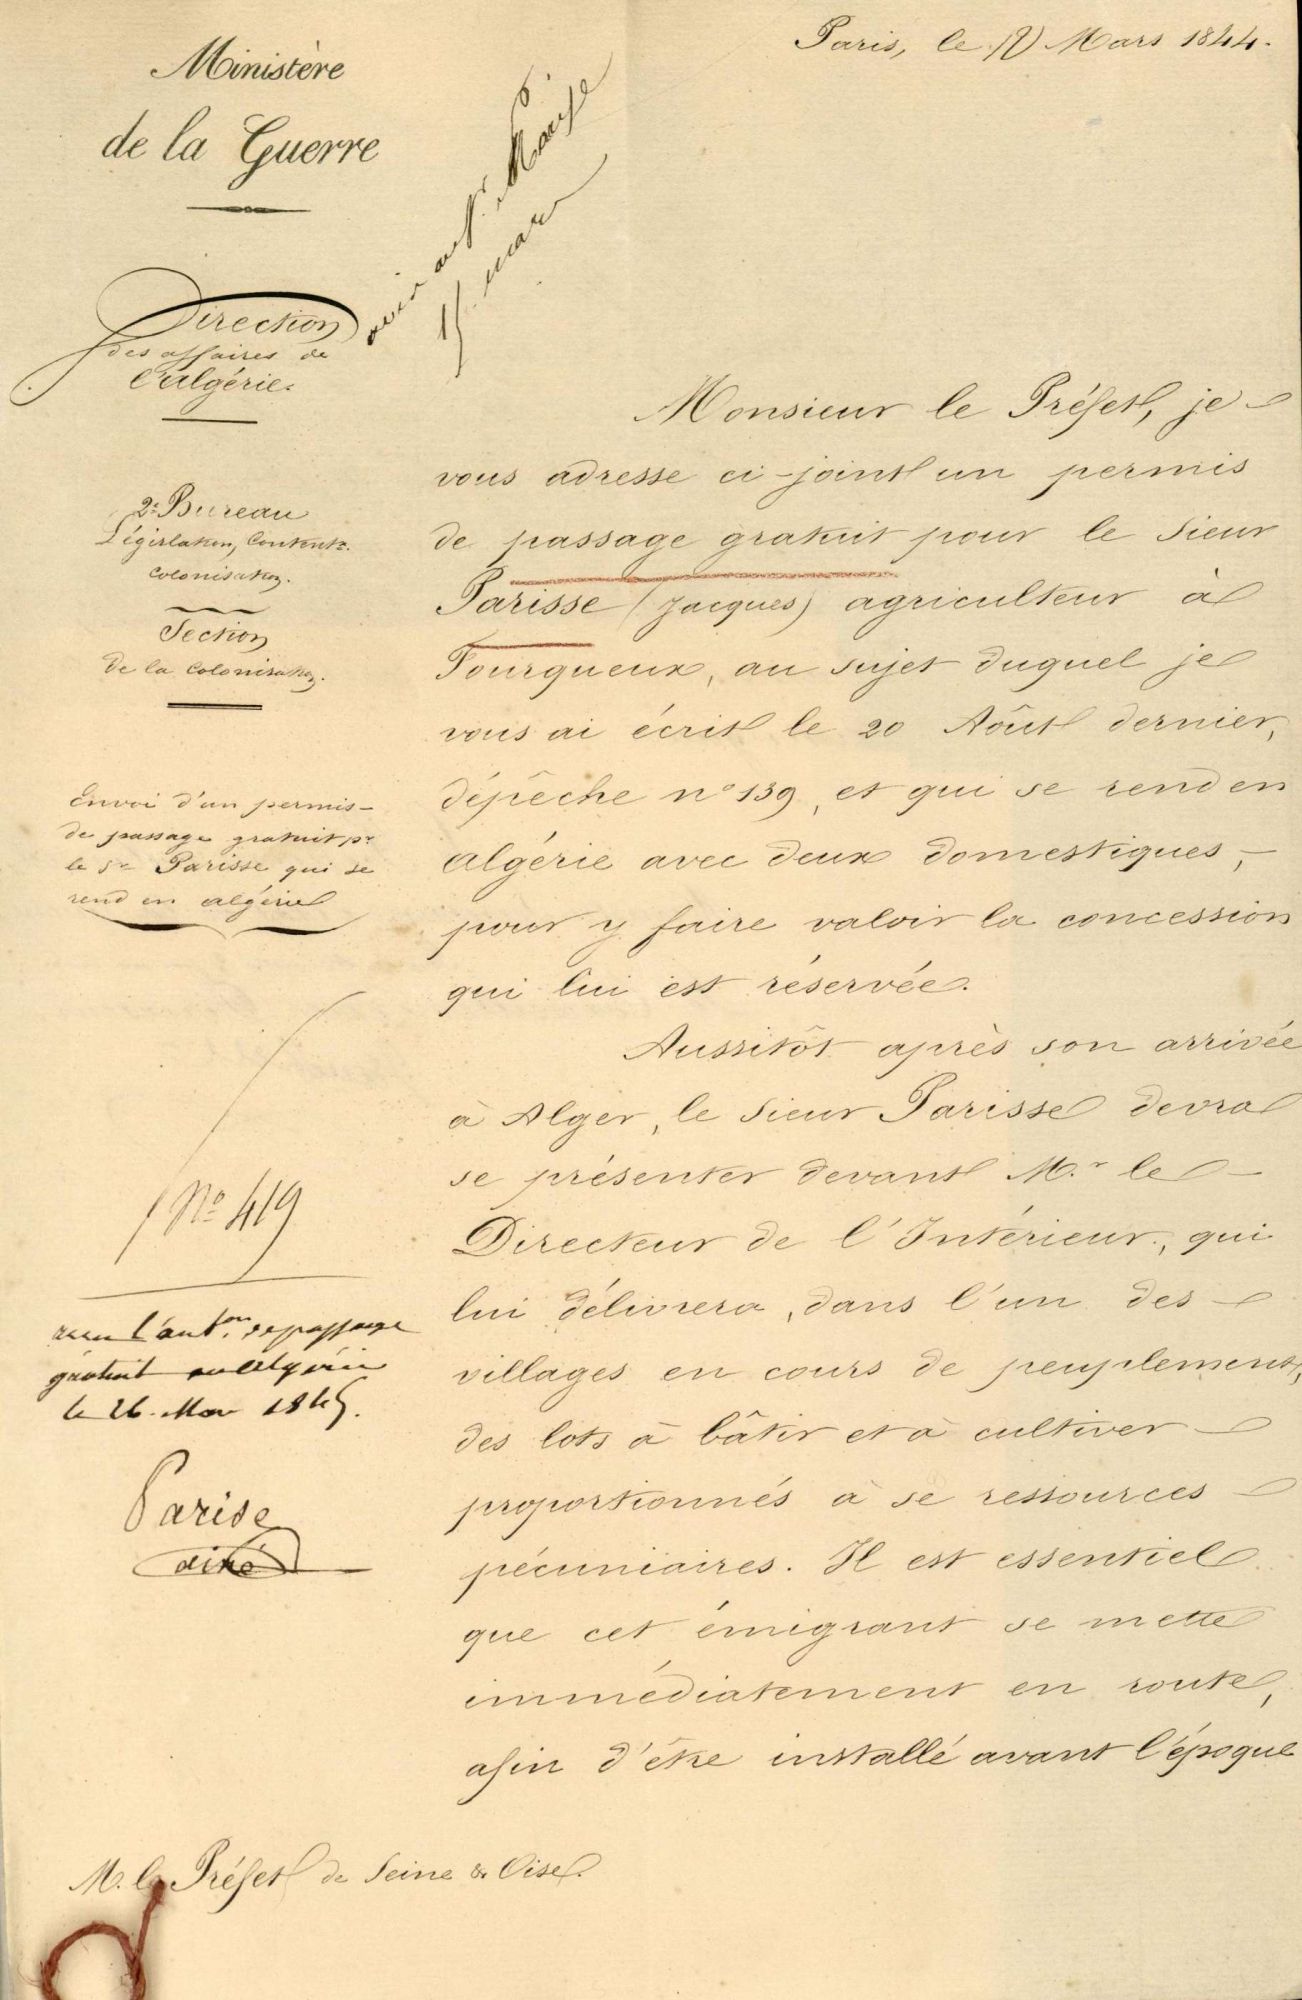 Paris, le 12 Mars 1844.
Ministère
de la Guerre
avis au Sr. Parise
15 mars
Direction
des affaires de
l'Algérie.
2e Bureau
Législation, Contentx.
Colonisation.
Section
de la Colonisation.
Envoi d'un permis
de passage gratuit pr
le Sr Parisse qui se
rend en algérie
No 419
reçu l'auton. de passage
gratuit en Algérie
le 26. Mar 1845.
Parise
ainé
Monsieur le Préfet, je
vous adresse ci-joint un permis
de passage gratuit pour le Sieur
Parisse (Jacques) agriculteur à
Fourqueux, au sujet duquel je
vous ai écrit le 20 Aôut dernier,
dépêche no 139, et qui se rend en
algérie avec deux domestiques,
pour y faire valoir la concession
qui lui est réservée.
Aussitôt après son arrivée
à Alger, le Sieur Parisse devra
se présenter devant Mr. le
Directeur de l'Intérieur, qui
lui délivrera, dans l'un des
villages en cours de peuplement,
des lots à bâtir et à cultiver
proportionnés à se ressources
pécuniaires. Il est essentiel
que cet émigrant se mette
immédiatement en route,
afin d'être installé avant l'époque
M. le Préfet de Seine & Oise.